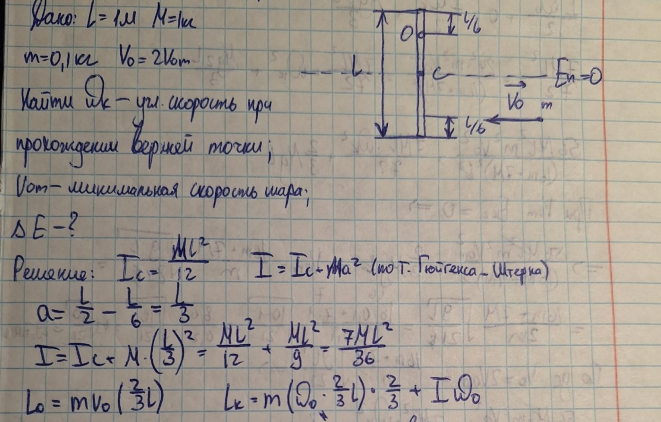 Дано: L = 1м M = 1кг
m = 0,1кг V₀ = 2V₀m
Найти ω_k – угл. скорость при
прохождении верхней точки;
V₀m – минимальная скорость шара;
ΔE – ?
O
L/6
L
C
Eп = 0
V₀ m
L/6
Решение: Ic = ML²/12 I = Ic + Ma² (по т. Гюйгенса – Штерка)
a = L/2 – L/6 = L/3
I = Ic + M·(L/3)² = ML²/12 + ML²/9 = 7ML²/36
L₀ = mV₀(2/3 L) L_k = m(ω₀·2/3 L)·2/3 + Iω₀